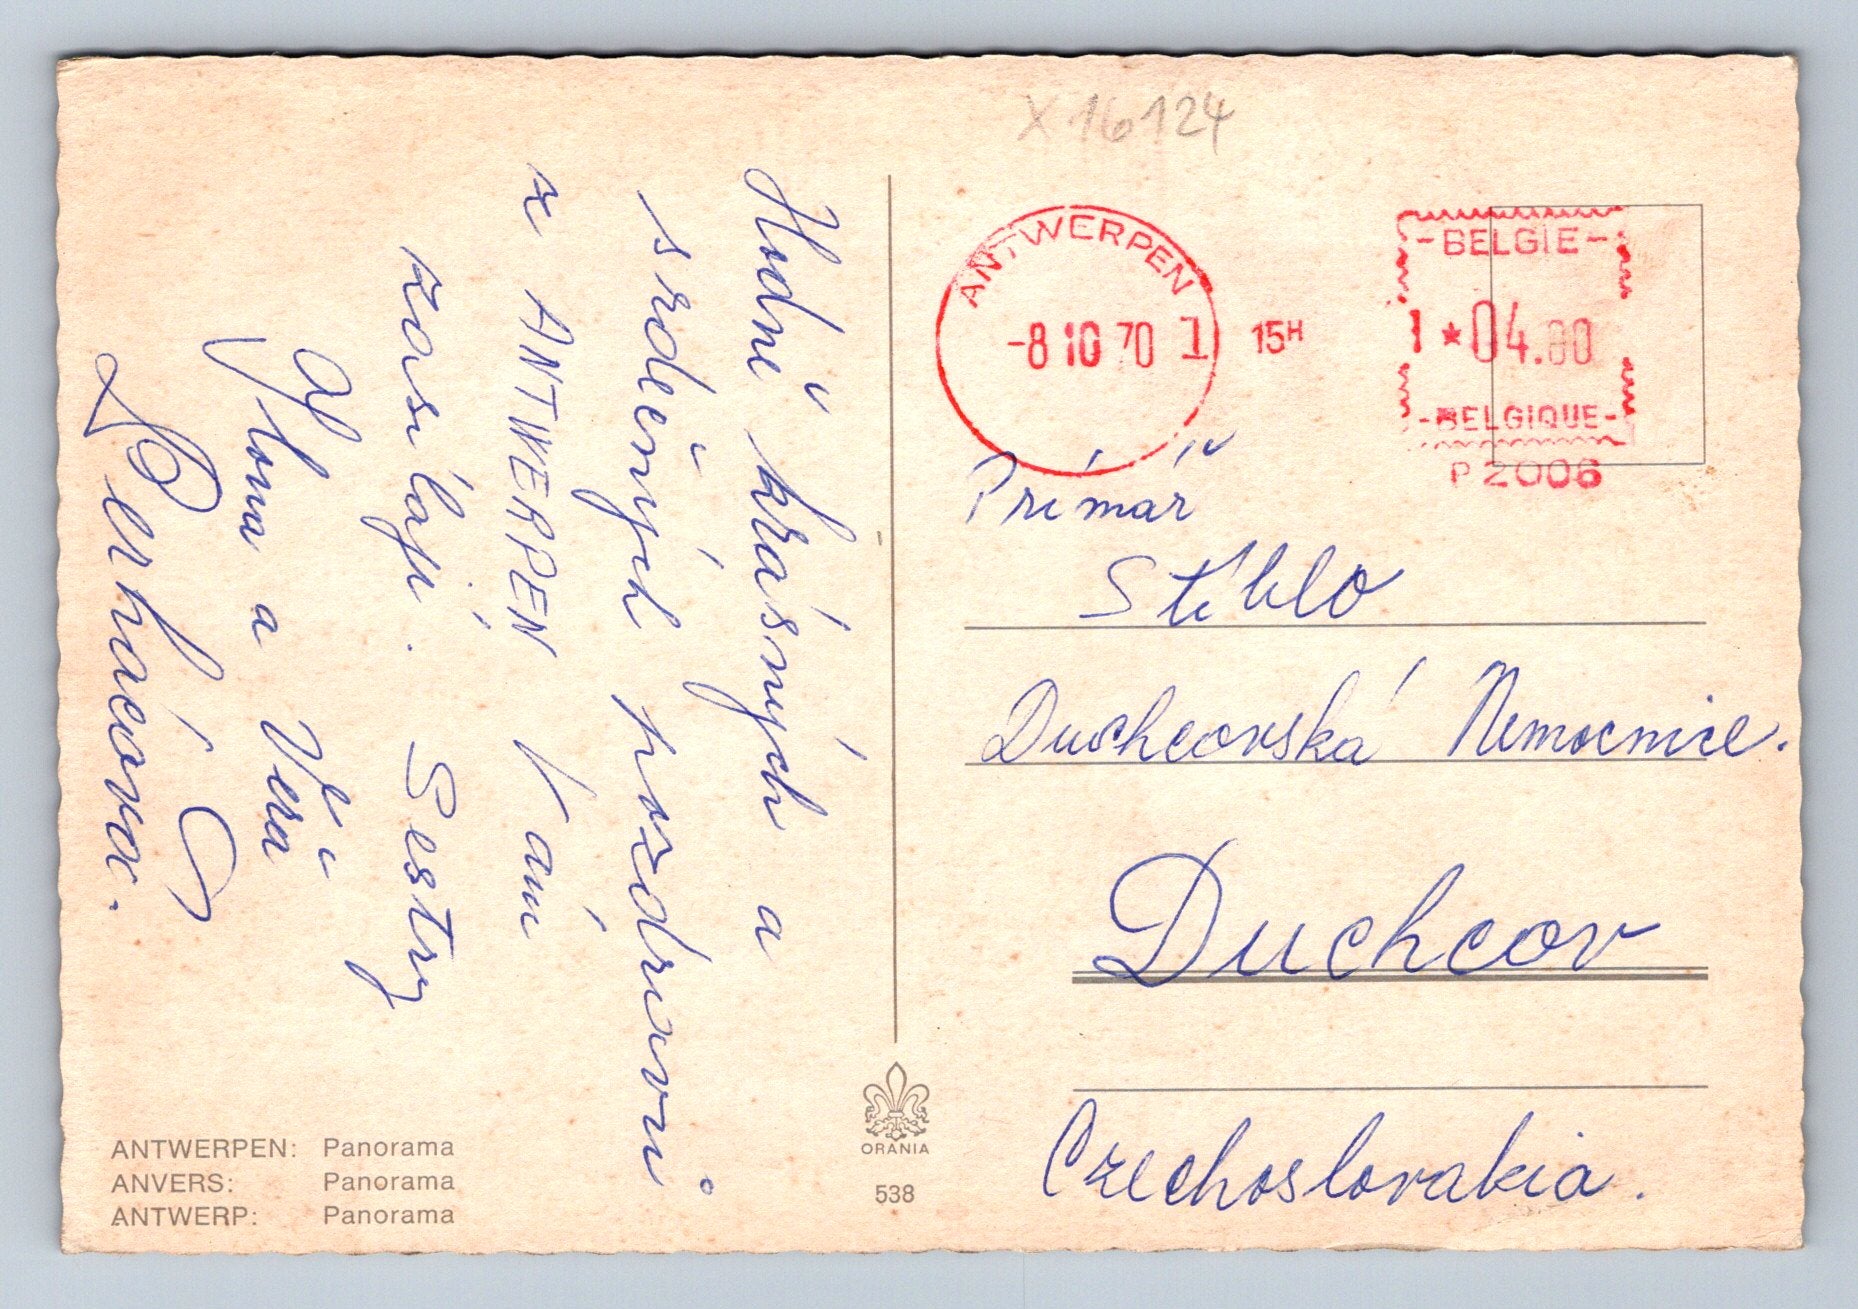 X 16124
Hodně krásných a
srdečných pozdravů
z ANTWERPEN Vám
zasílají. Sestry
a Věra
ANTWERPEN: Panorama
ANVERS: Panorama
ANTWERP: Panorama
ORANIA
538
ANTWERPEN
-8 10 70 1
15H
-BELGIE-
1 *04.00
-BELGIQUE-
P2006
Primář
Stíblo
Duchcovská Nemocnice.
Duchcov
Czechoslovakia.